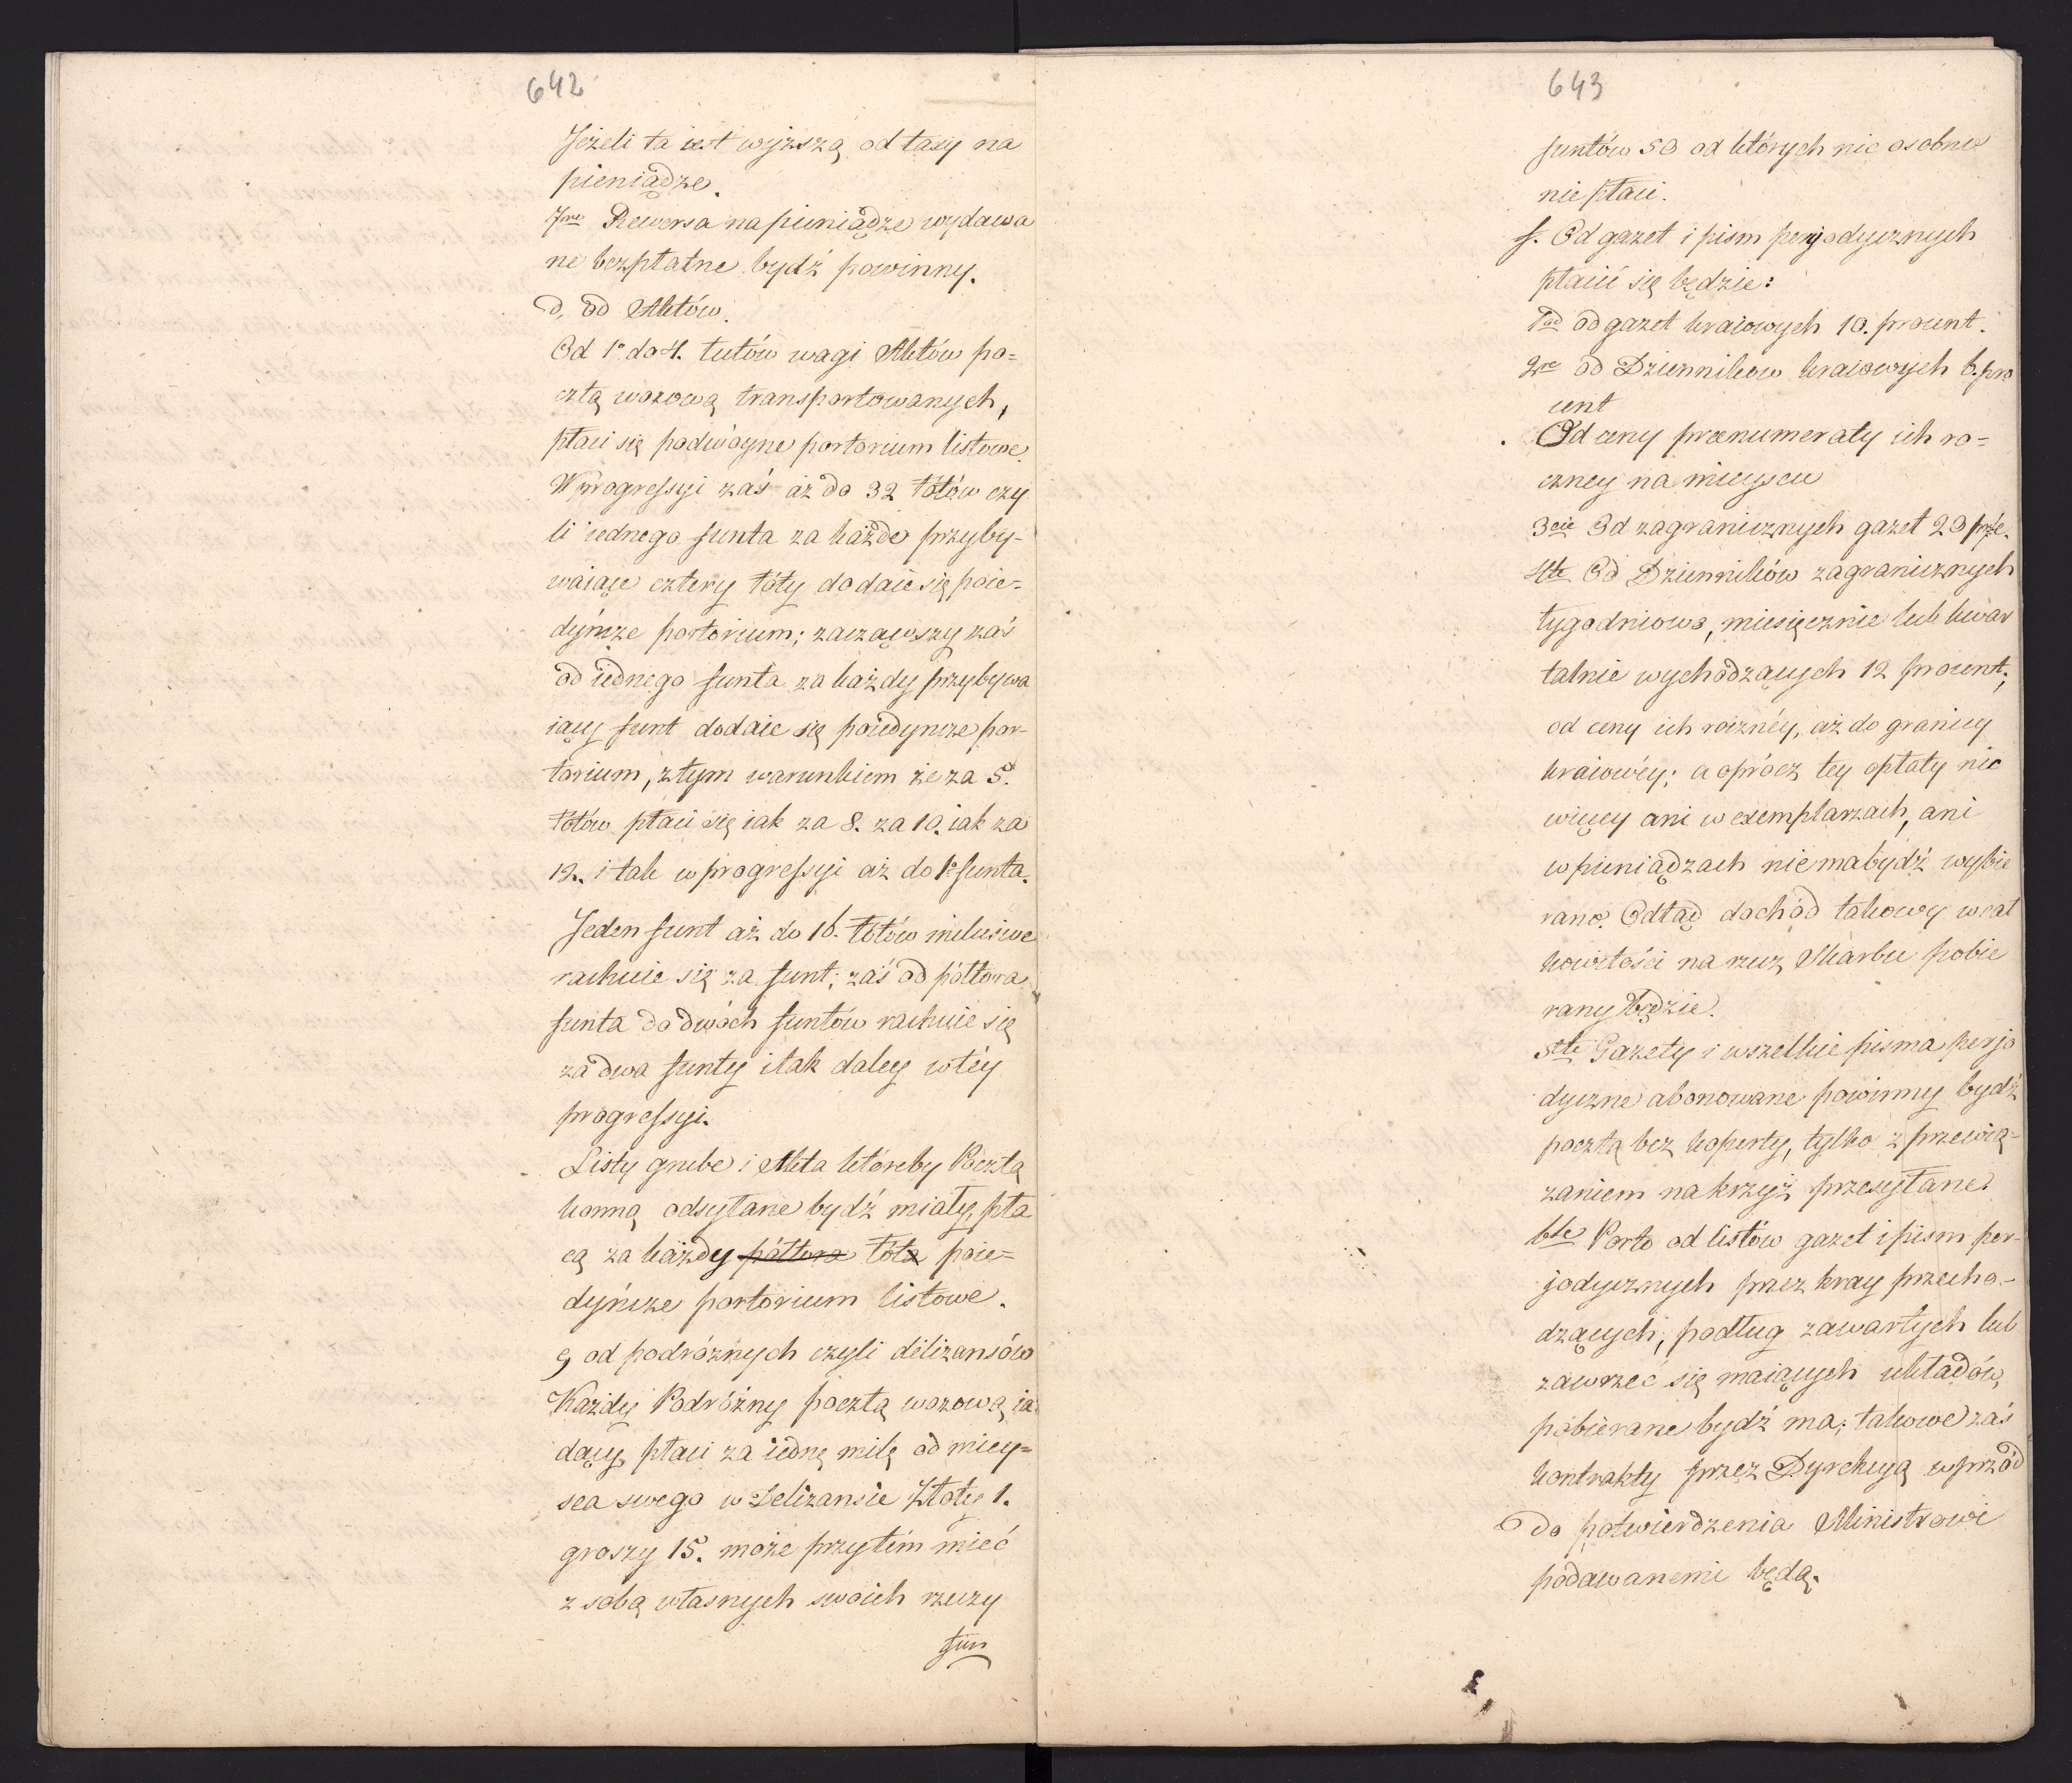 642
Jeżeli ta iest wyższą od taxy na
pieniądze.
7me Rewersa na pieniądze wydawa
ne bezpłatne bydź powinny.
d, od Aktów.
Od 1o do 4. łutów wagi Aktów po=
cztą wozową transportowanych,
płaci się podwóyne portorium listowe.
W progressyi zaś aż do 32 łótów czy
li iednego funta za każde przyby-
waiące cztery łóty dodaie się poie=
dyńcze portorium; zacząwszy zaś
od iednego funta za każdy przybywa
iący funt dodaie się poiedyncze por-
torium, z tym warunkiem że za 5.
łótów płaci się iak za 8. za 10. iak za
12. i tak w progressyi aż do 1o funta.
Jeden funt aż do 16. łótów inkusive
rachuie się za funt; zaś od półtora
funta do dwóch funtów rachuie się
za dwa funty i tak daley w téy
progressyi.
Listy grube i Akta któreby Pocztą
konną odsyłane bydź miały, pła
cą za każdy półtora łóta poie=
dyńcze portorium listowe.
e, od podróżnych czyli deliżansów
Każdy Podróżny pocztą wozową ia
dący, płaci za iednę milę od miey=
sca swego w Deliżansie Złoty 1.
groszy 15. może przytém mieć
z sobą własnych swoich rzeczy
fun
643
funtów 50 od których nic osobno
nie płaci.
f. Od gazet i pism peryodycznych
płacić się będzie:
1od od gazet kraiowych 10. procent.
2re od Dzienników kraiowych 6. pro
cent
Od ceny prenumeraty ich ro=
czney na mieyscu
3cie Od zagranicznych gazet 20 prc.
4te Od Dzienników zagranicznych
tygodniowo, miesięcznie lub kwar
talnie wychodzących 12 procent.,
od ceny ich rocznéy, aż do granicy
kraiowéy; a oprócz tey opłaty nic
więcy ani w exemplarzach, ani
w pieniądzach nie ma bydź wybie
rane. Odtąd dochód takowy w cał
kowitości na rzecz Skarbu pobie
rany będzie.
5te Gazety i wszelkie pisma perjo
dyczne abonowane powinny bydź
pocztą bez koperty, tylko z przewią=
zaniem na krzyż przesyłane.
6te Porto od listów gazet i pism per-
jodycznych przez kray przecho-
dzących, podług zawartych lub
zawrzeć się maiących układów,
pobierane bydź ma; takowe zaś
kontrakty przez Dyrekcyą wprzód
do potwierdzenia Ministrowi
podawanemi będą.